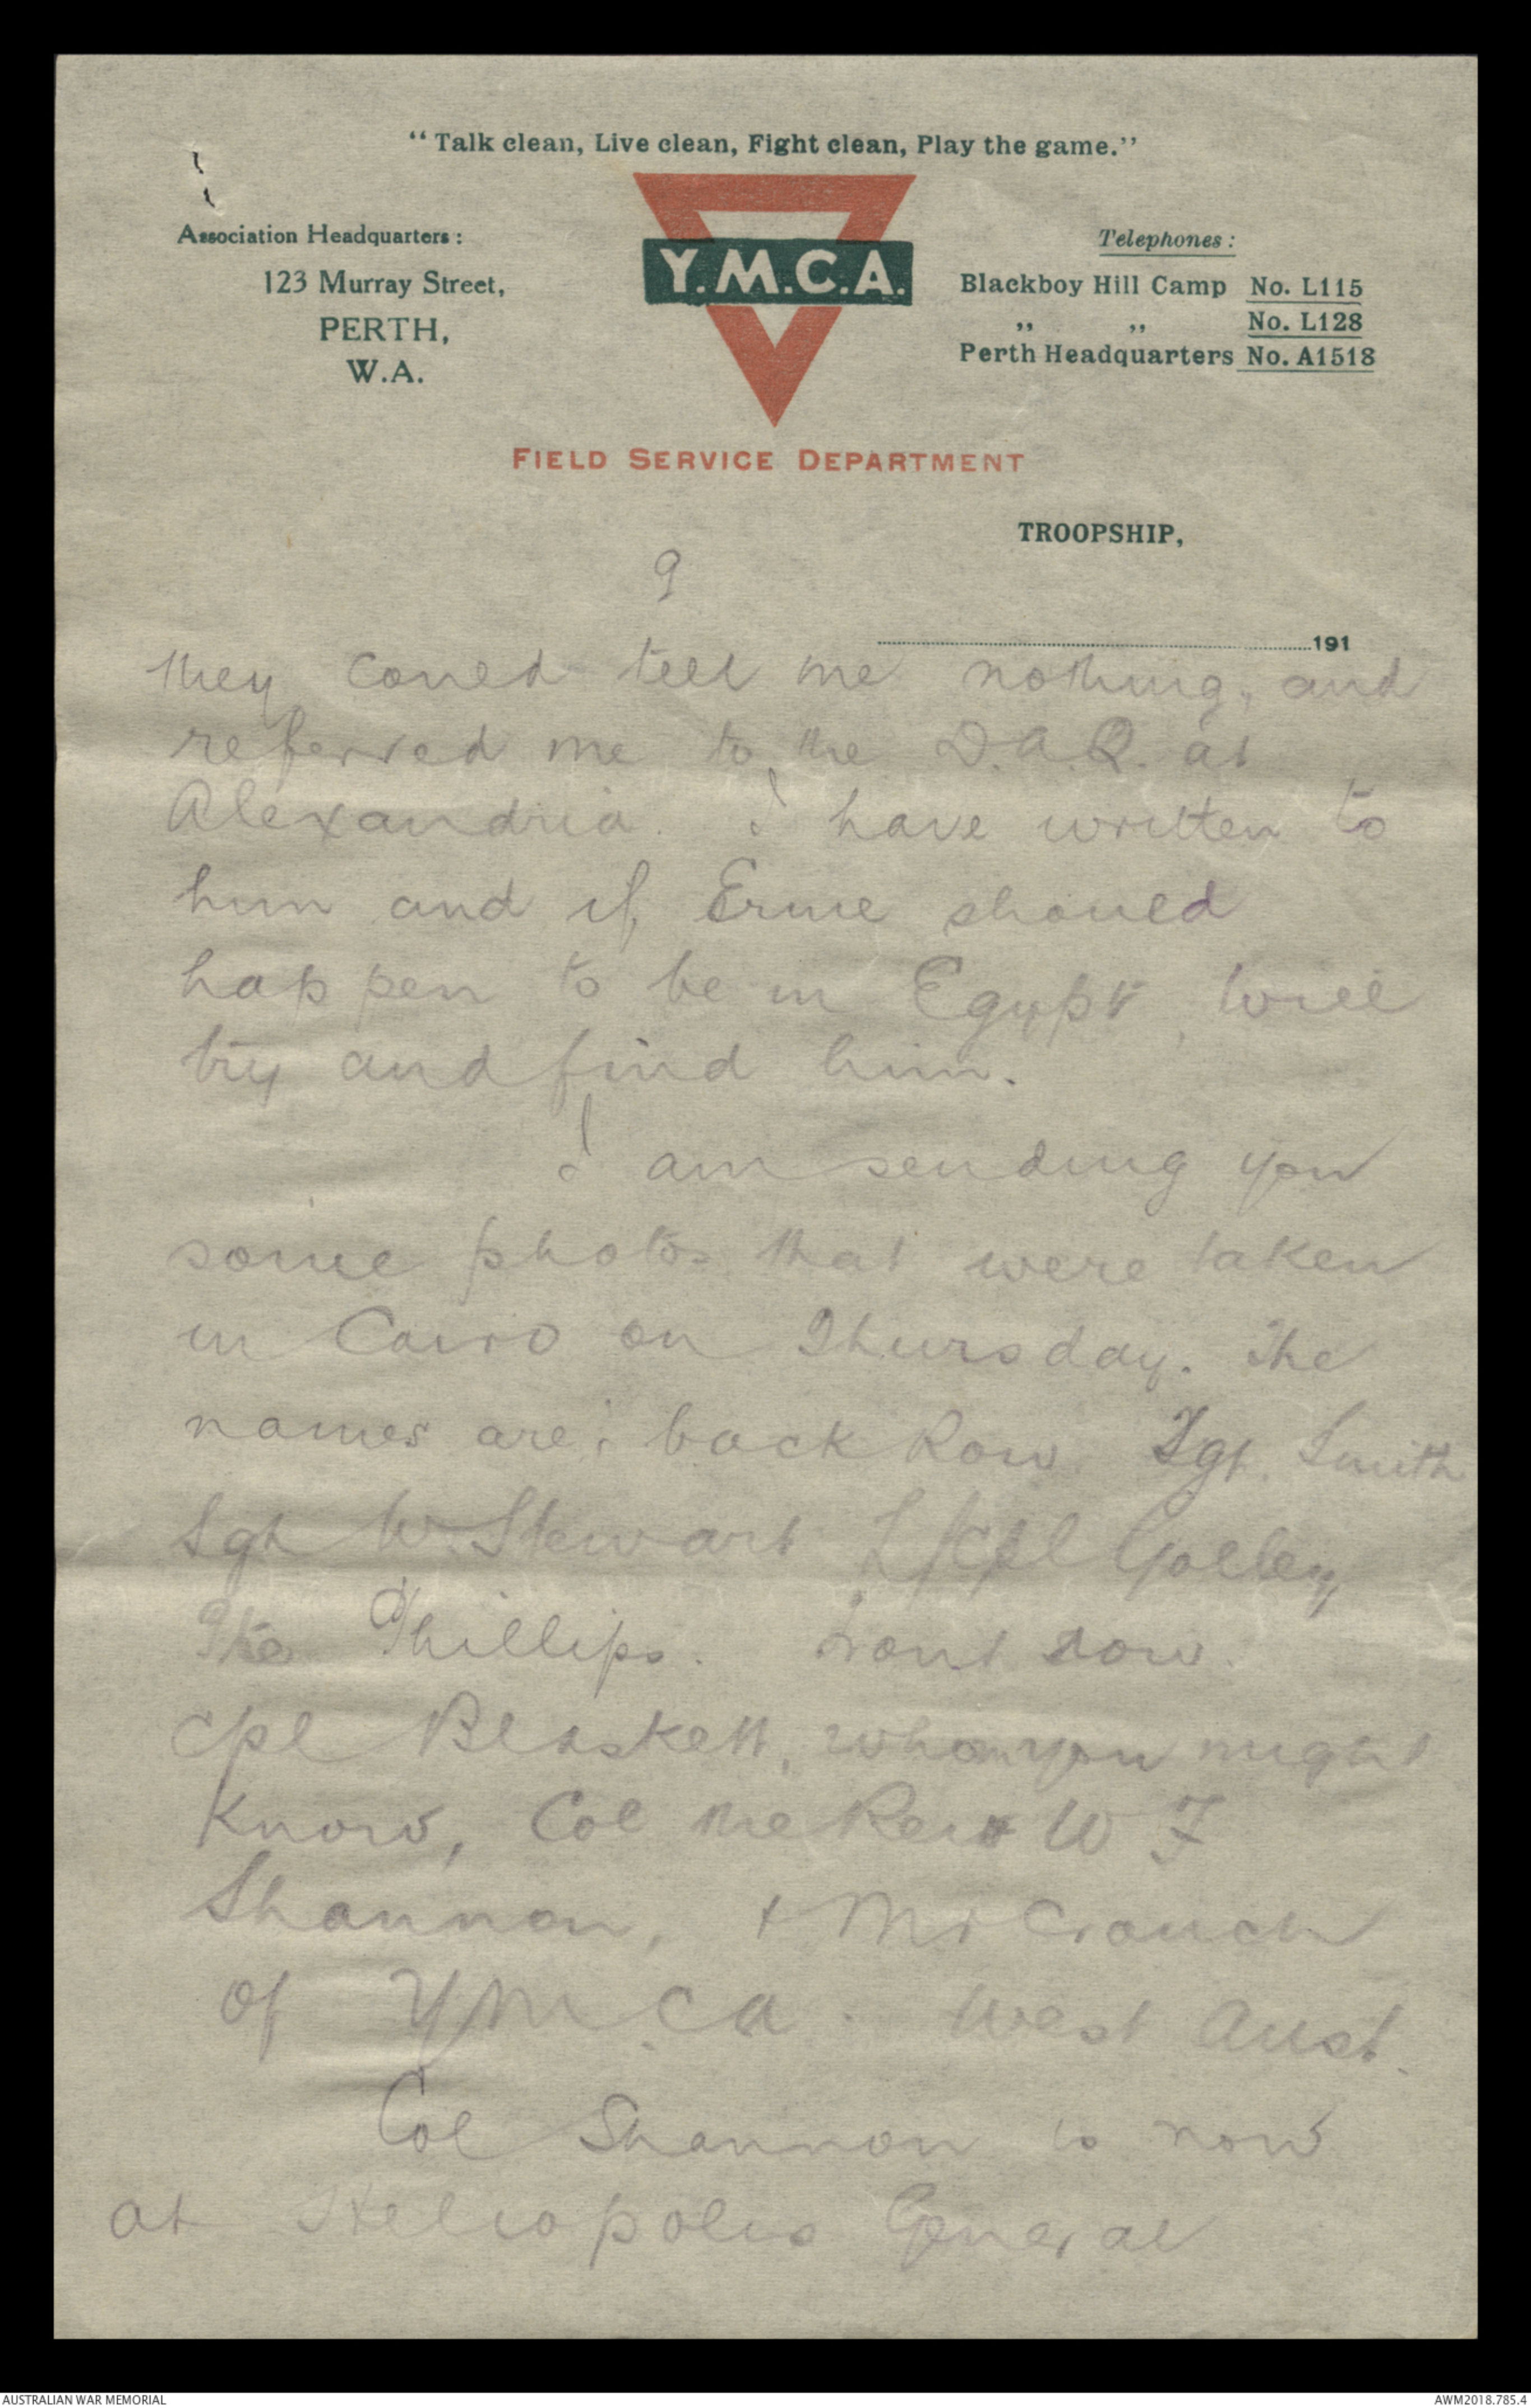 “Talk clean, Live clean, Fight clean, Play the game.”
Association Headquarters:
123 Murray Street,
PERTH,
W.A.
Y.M.C.A.
Telephones:
Blackboy Hill Camp No. L115
„ „ No. L128
Perth Headquarters No. A1518
FIELD SERVICE DEPARTMENT
TROOPSHIP,
9
191
they could tell me nothing, and
referred me to the D.A.Q. at
Alexandria. I have written to
him and if Ernie should
happen to be in Egypt, will
try and find him.
I am sending you
some photos that were taken
in Cairo on Thursday. The
names are: back Row. Sgt. Smith
Sgt W. Stewart L/Cpl Golley
Pte Phillips. Front row.
Cpl Blaskett, whom you might
know, Col the Rev W F
Shannon, + Mr Crouch
of YMCA. West Aust.
Col Shannon is now
at Heliopolis General
AUSTRALIAN WAR MEMORIAL
AWM2018.785.4